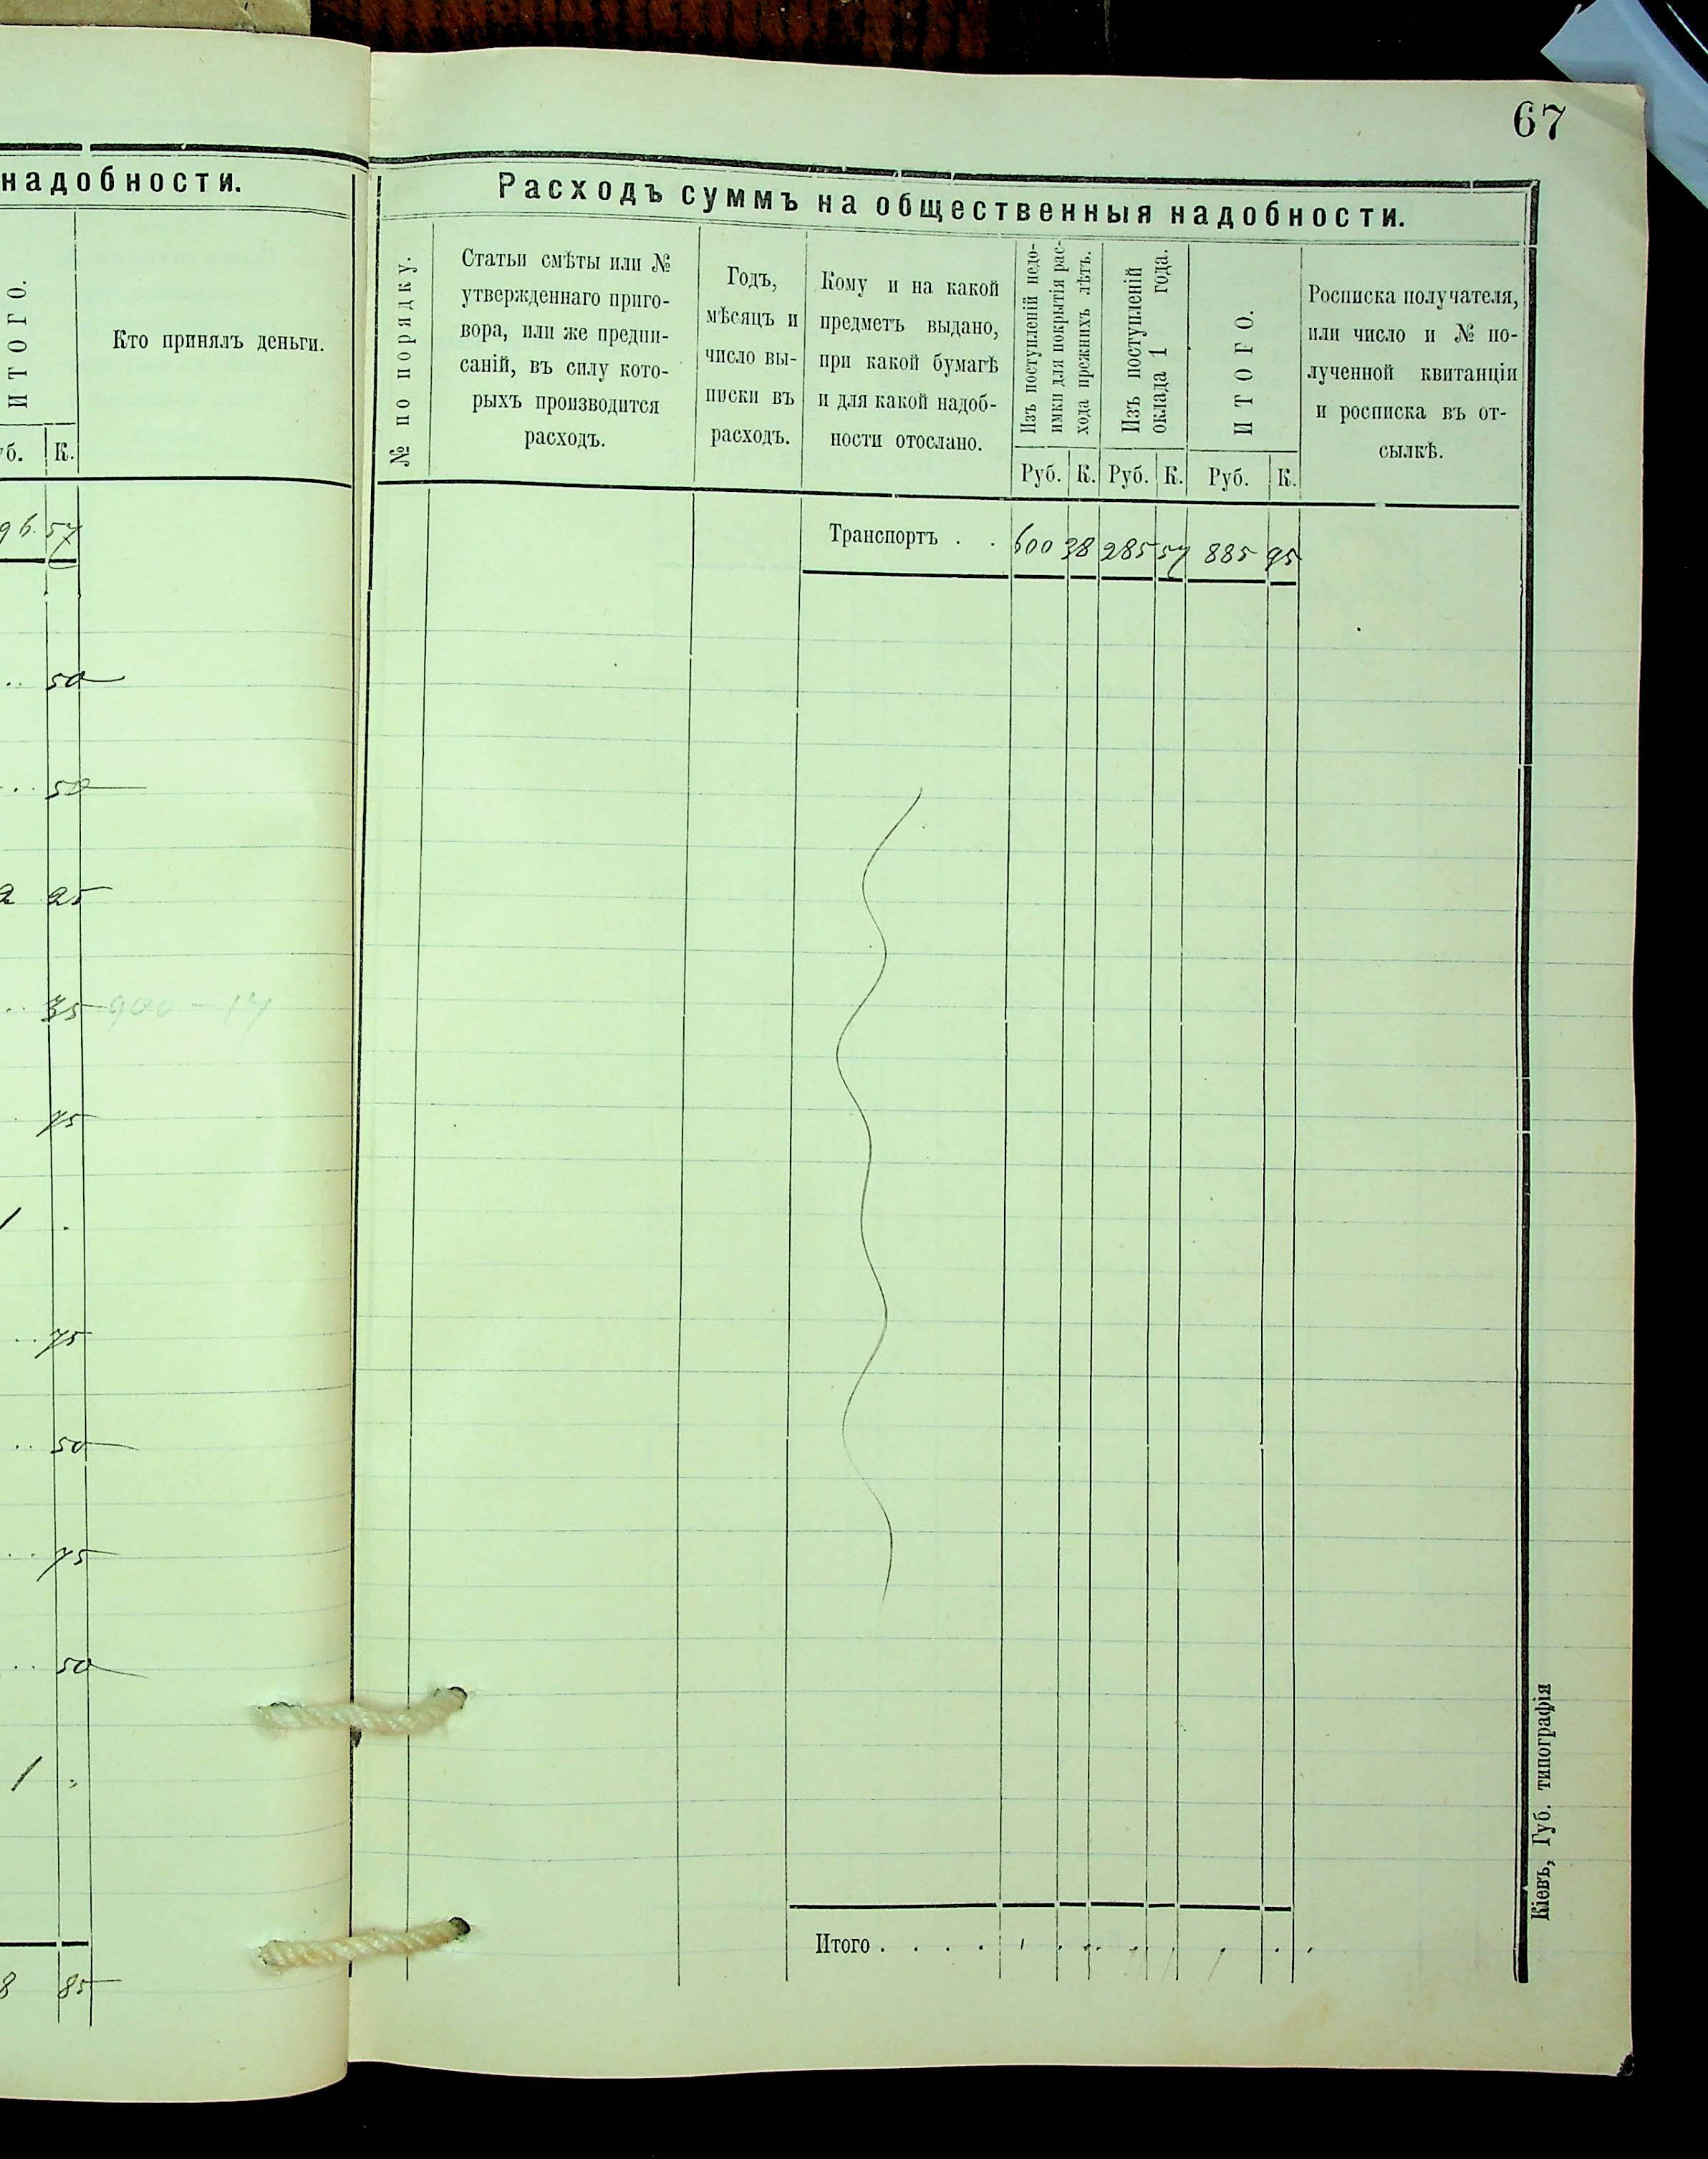 67
надобности.
ИТОГО.
Кто принялъ деньги.
уб. К.
96 57
50
50
2 25
35 900 - 17
75
1 .
75
50
75
50
1
8 85
Расходъ суммъ на общественныя надобности.
№ по порядку.
Статьи смѣты или №
утвержденнаго приго-
вора, или же предпи-
саній, въ силу кото-
рыхъ производится
расходъ.
Годъ,
мѣсяцъ и
число вы-
писки въ
расходъ.
Кому и на какой
предметъ выдано,
при какой бумагѣ
и для какой надоб-
ности отослано.
Изъ поступленій недо-
имки для покрытія рас-
хода прежнихъ лѣтъ.
Изъ поступленій
оклада 1 года.
ИТОГО.
Росписка получателя,
или число и № по-
лученной квитанціи
и росписка въ от-
сылкѣ.
Руб. К. Руб. К. Руб. К.
Транспортъ . . 600 38 285 57 885 95
Итого . . . .
Кіевъ, Губ. типографія